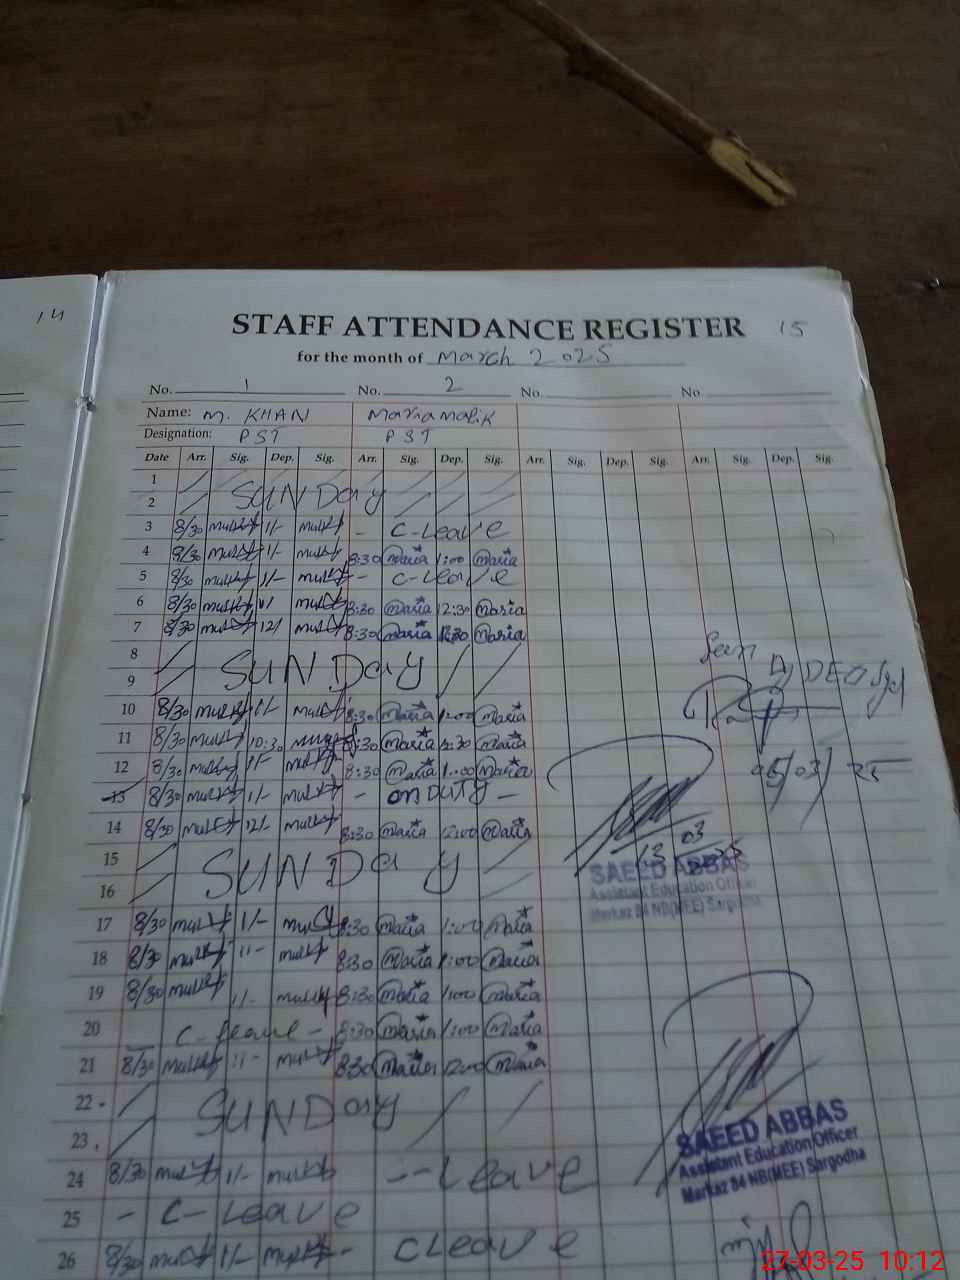 14
STAFF ATTENDANCE REGISTER 15
for the month of March 2025
No. 1 No. 2 No. No.
Name: M. KHAN Maria malik
Designation: PST PST
Date Arr. Sig. Dep. Sig. Arr. Sig. Dep. Sig. Arr. Sig. Dep. Sig. Arr. Sig. Dep. Sig.
1
2 SUNDay
3 8/30 1/- - C-Leave
4 8/30 1/- 8:30 Maria 1:00 Maria
5 8/30 1/- - C-Leave
6 8/30 1/ 8:30 Maria 12:30 Maria
7 8/30 12/ 8:30 Maria Maria
8
9 SUNDay
10 8/30 1/- 8:30 Maria 1:00 Maria
11 8/30 10:30 8:30 Maria Maria
12 8/30 1/- 8:30 Maria 1:00 Maria
13 8/30 1/- - on DUTY -
14 8/30 12/- 8:30 Maria 12:00 Maria
15
16 SUNDay
17 8/30 1/- 8:30 Maria 1:00 Maria
18 8/30 1/- 8:30 Maria 1:00 Maria
19 8/30 1/- 8:30 Maria 1:00 Maria
20 C-Leave - 8:30 Maria 1:00 Maria
21 8/30 1/- 8:30 Maria 12:00 Maria
22
23 SUNDay
24 8/30 1/- -- Leave
25 - C-Leave
26 8/30 1/- - CLeave
Seen
DEO Sgd
05/03/25
13 03
SAEED ABBAS
Assistant Education Officer
Markaz 84 NB(MEE) Sargodha
SAEED ABBAS
Assistant Education Officer
Markaz 84 NB(MEE) Sargodha
27-03-25 10:12